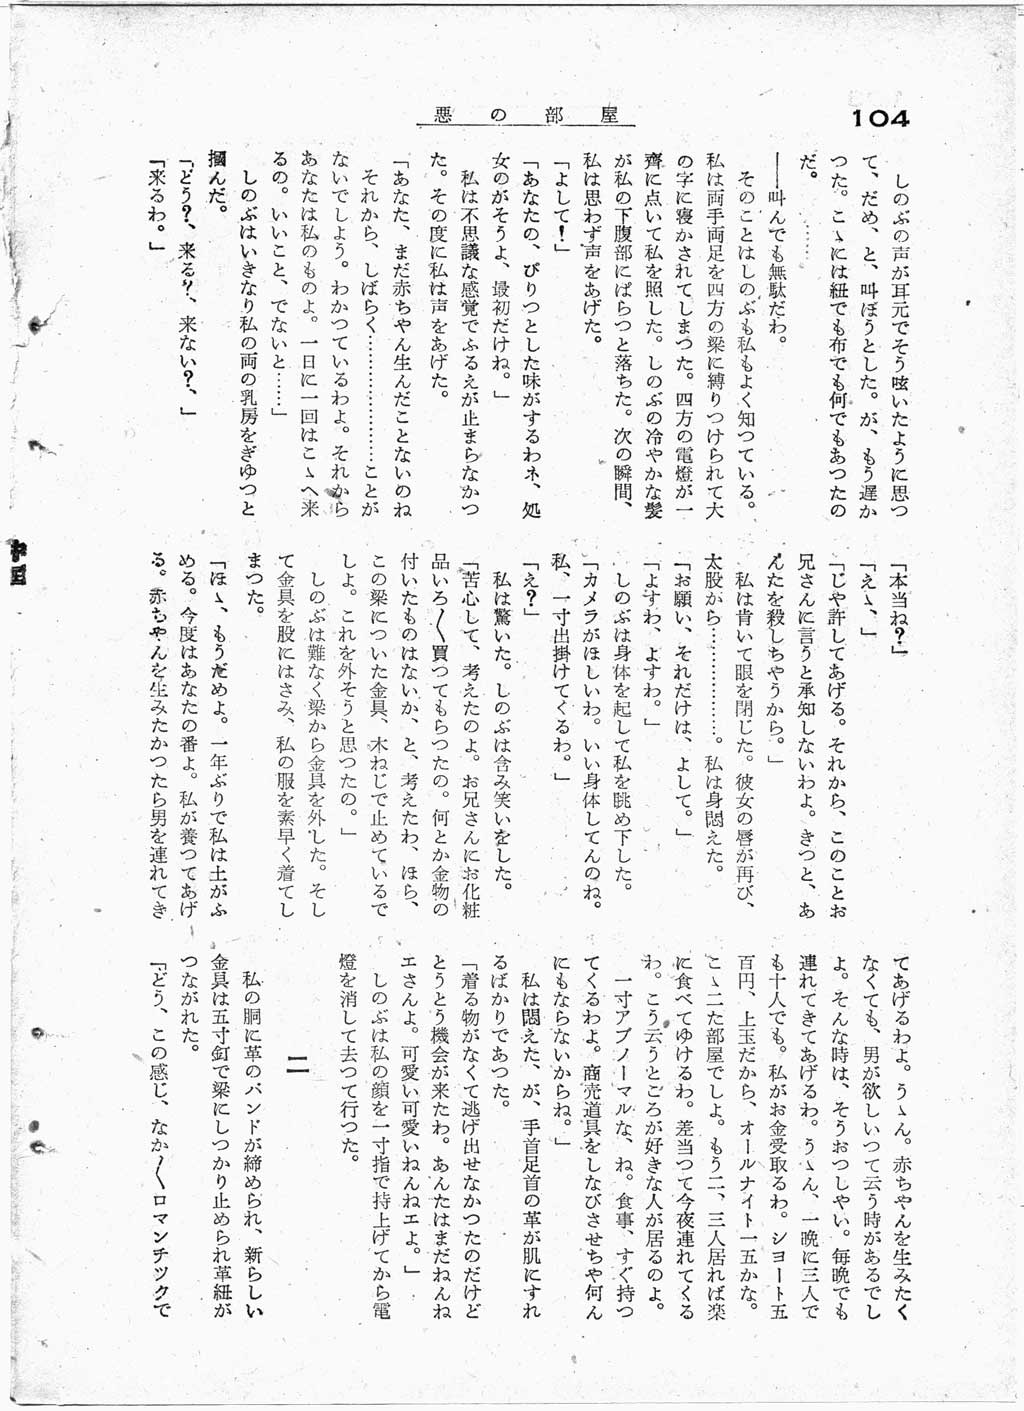 104
悪の部屋
しのぶの声が耳元でそう呟いたように思つ
て、だめ、と、叫ぼうとした。が、もう遅か
つた。こゝには紐でも布でも何でもあつたの
だ。……
――叫んでも無駄だわ。
そのことはしのぶも私もよく知つている。
私は両手両足を四方の梁に縛りつけられて大
の字に寝かされてしまつた。四方の電燈が一
齊に点いて私を照した。しのぶの冷やかな髪
が私の下腹部にぱらつと落ちた。次の瞬間、
私は思わず声をあげた。
「よして！」
「あなたの、ぴりつとした味がするわネ、処
女のがそうよ、最初だけね。」
私は不思議な感覚でふるえが止まらなかつ
た。その度に私は声をあげた。
「あなた、まだ赤ちやん生んだことないのね
それから、しばらく………………ことが
ないでしよう。わかつているわよ。それから
あなたは私のものよ。一日に一回はこゝへ来
るの。いいこと、でないと……」
しのぶはいきなり私の両の乳房をぎゆつと
摑んだ。
「どう？、来る？、来ない？、」
「来るわ。」
「本当ね？」
「えゝ、」
「じや許してあげる。それから、このことお
兄さんに言うと承知しないわよ。きつと、あ
んたを殺しちやうから。」
私は肯いて眼を閉じた。彼女の唇が再び、
太股から……………。私は身悶えた。
「お願い、それだけは、よして。」
「よすわ、よすわ。」
しのぶは身体を起して私を眺め下した。
「カメラがほしいわ。いい身体してんのね。
私、一寸出掛けてくるわ。」
「え？」
私は驚いた。しのぶは含み笑いをした。
「苦心して、考えたのよ。お兄さんにお化粧
品いろ〳〵買つてもらつたの。何とか金物の
付いたものはないか、と、考えたわ、ほら、
この梁についた金具、木ねじで止めているで
しよ。これを外そうと思つたの。」
しのぶは難なく梁から金具を外した。そし
て金具を股にはさみ、私の服を素早く着てし
まつた。
「ほゝ、もうだめよ。一年ぶりで私は土がふ
める。今度はあなたの番よ。私が養つてあげ
る。赤ちやんを生みたかつたら男を連れてき
てあげるわよ。うゝん。赤ちやんを生みたく
なくても、男が欲しいつて云う時があるでし
よ。そんな時は、そうおつしやい。毎晩でも
連れてきてあげるわ。うゝん、一晩に三人で
も十人でも。私がお金受取るわ。シヨート五
百円、上玉だから、オールナイト一五かな。
こゝ二た部屋でしよ。もう二、三人居れば楽
に食べてゆけるわ。差当つて今夜連れてくる
わ。こう云うところが好きな人が居るのよ。
一寸アブノーマルな、ね。食事、すぐ持つ
てくるわよ。商売道具をしなびさせちや何ん
にもならないからね。」
私は悶えた、が、手首足首の革が肌にすれ
るばかりであつた。
「着る物がなくて逃げ出せなかつたのだけど
とうとう機会が来たわ。あんたはまだねんね
エさんよ。可愛い可愛いねんねエよ。」
しのぶは私の顔を一寸指で持上げてから電
燈を消して去つて行つた。
二
私の胴に革のバンドが締められ、新らしい
金具は五寸釘で梁にしつかり止められ革紐が
つながれた。
「どう、この感じ、なか〳〵ロマンチツクで